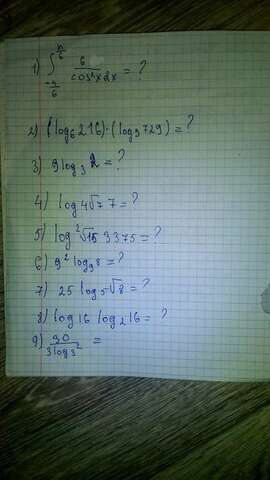 1) ∫_{-π/6}^{π/6} 6/cos²x dx = ?
2) (log₆ 216)·(log₉ 729) = ?
3) 9 log₃ 2 = ?
4) log 4√7 7 = ?
5) log ²√15 3375 = ?
6) 9² log₉ 8 = ?
7) 25 log₅ √8 = ?
8) log 16 log₂ 16 = ?
9) 30/3log3² =